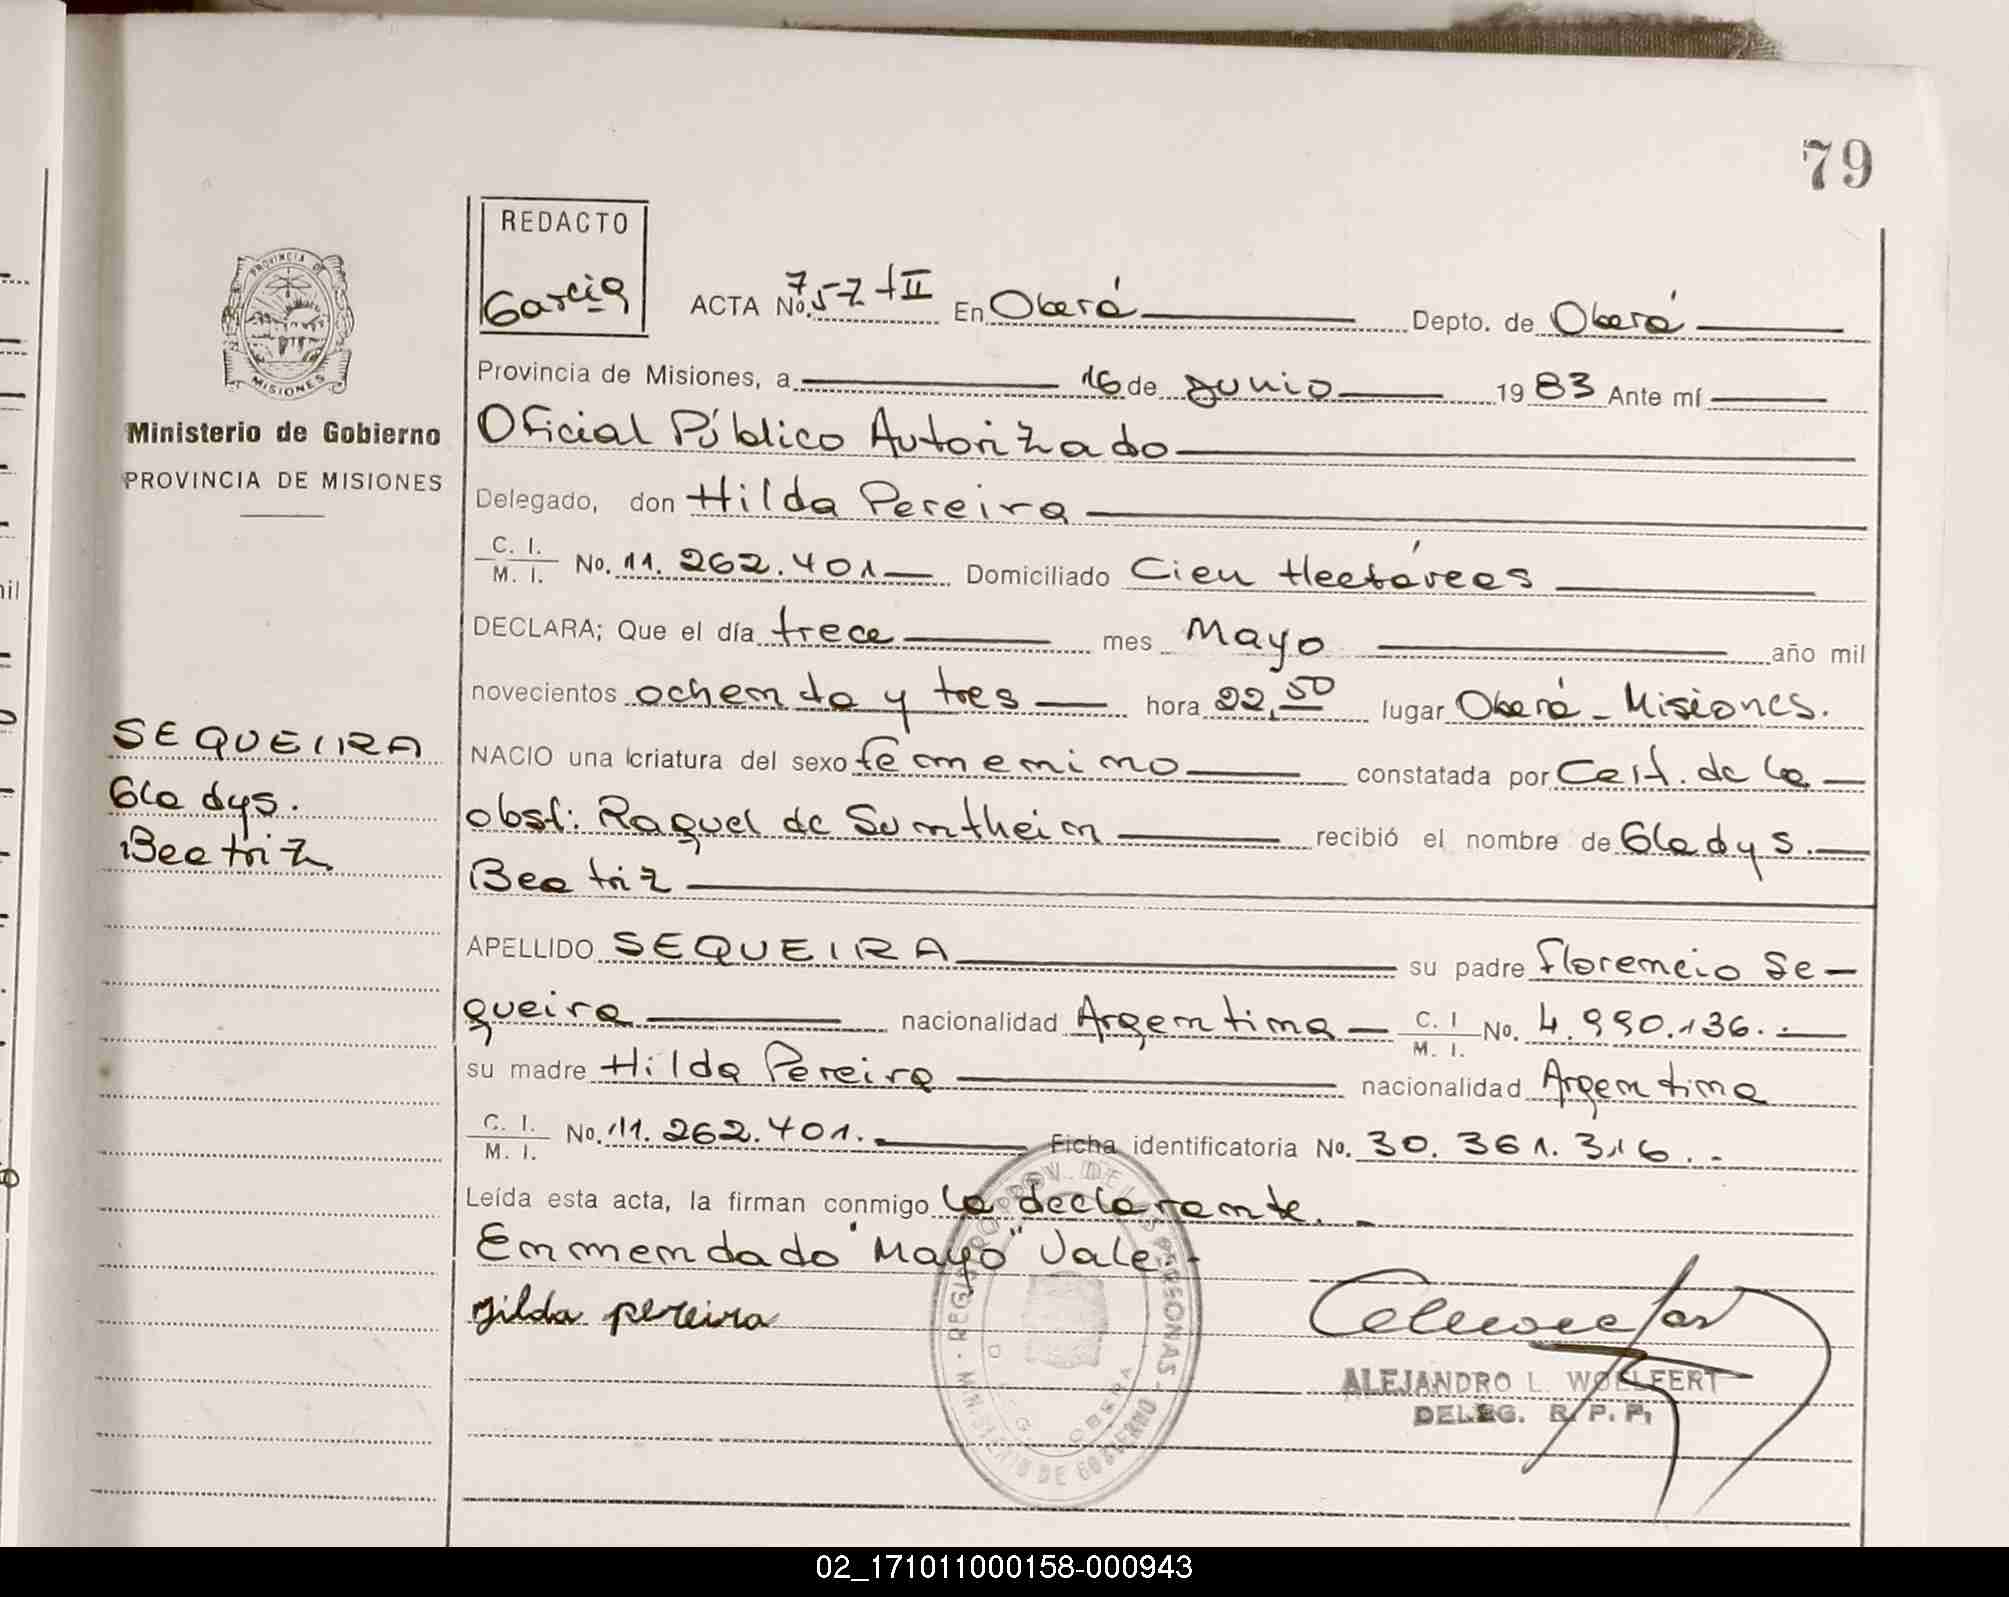 79
REDACTO
Garcia
ACTA No. 757 tII En Oberá Depto. de Oberá
PROVINCIA DE
MISIONES
Provincia de Misiones, a 16 de Junio 1983 Ante mí
Ministerio de Gobierno
PROVINCIA DE MISIONES
Oficial Público Autorizado
Delegado, don Hilda Pereira
C. I.
M. I. No. 11.262.401 Domiciliado Cien Hectáreas
DECLARA; Que el día trece mes Mayo año mil
novecientos ochenta y tres hora 22,50 lugar Oberá - Misiones.
SEQUEIRA
Gladys.
Beatriz
NACIO una criatura del sexo femenino constatada por Cert. de la
obst: Raquel de Sumtheim recibió el nombre de Gladys.
Beatriz
APELLIDO SEQUEIRA su padre Florencio Se-
queira nacionalidad Argentina C. I
M. I. No. 4.990.136.
su madre Hilda Pereira nacionalidad Argentina
C. I.
M. I. No. 11.262.401. Ficha identificatoria No. 30.361.316.-
Leída esta acta, la firman conmigo la declarante.-
Enmendado "Mayo" Vale-
Hilda pereira
REGISTRO PROV. DE LAS PERSONAS
MINISTERIO DE GOBIERNO
ALEJANDRO L. WOLFERT
DELEG. R. P. P.
02_171011000158-000943